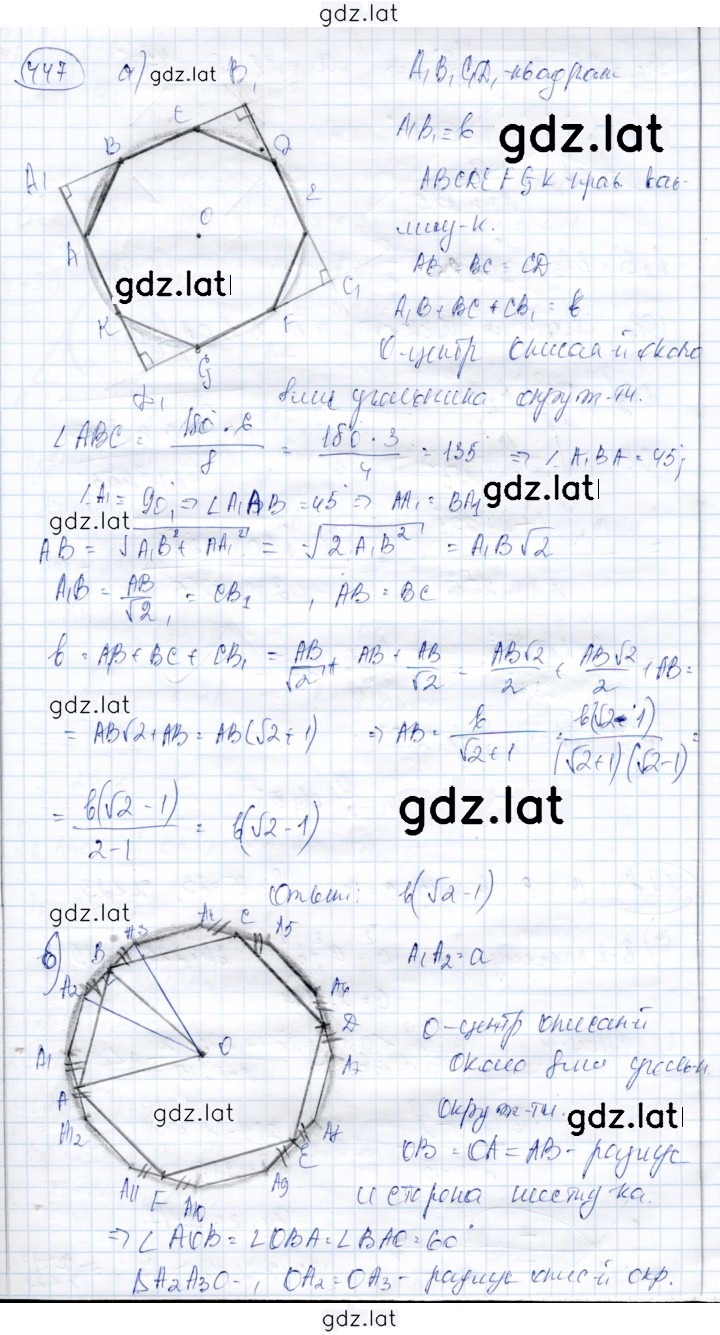 gdz.lat
447 а) gdz.lat
A₁B₁C₁D₁ - квадрат
A₁B₁ = b
gdz.lat
ABCDEFGK - прав. вось-
миуг-к.
AB = BC = CD
A₁B + BC + CB₁ = b
O - центр описан-й около
восьмиугольника окруж-ти.
A₁ B C B₁ D E C₁ F G D₁ K A O
gdz.lat
∠ABC = 180 · 6 / 8 = 180 · 3 / 4 = 135° ⇒ ∠A₁BA = 45°;
∠A₁ = 90°, ⇒ ∠A₁AB = 45° ⇒ AA₁ = BA₁
gdz.lat
gdz.lat
AB = √A₁B² + AA₁² = √2 A₁B² = A₁B√2
A₁B = AB/√2, = CB₁, AB = BC
b = AB + BC + CB₁ = AB/√2 + AB + AB/√2 = AB√2/2 + AB√2/2 + AB =
gdz.lat
= AB√2 + AB = AB(√2 + 1) ⇒ AB = b/√2+1 = b(√2-1)/(√2+1)(√2-1) =
= b(√2-1)/2-1 = b(√2-1)
gdz.lat
Ответ: b(√2-1)
gdz.lat
б)
A₁ A₂ B A₃ A₄ C A₅ A₆ D A₇ E A₉ A₁₀ F A₁₁ A₁₂ A O
gdz.lat
A₁A₂ = a
O - центр описан-й
около
окруж-ти.
gdz.lat
OB = OA = AB - радиус
и сторона шестиуг-ка.
⇒ ∠AOB = ∠OBA = ∠BAO = 60°
BA₂A₃O - , OA₂ = OA₃ - радиус опис-й окр.
gdz.lat